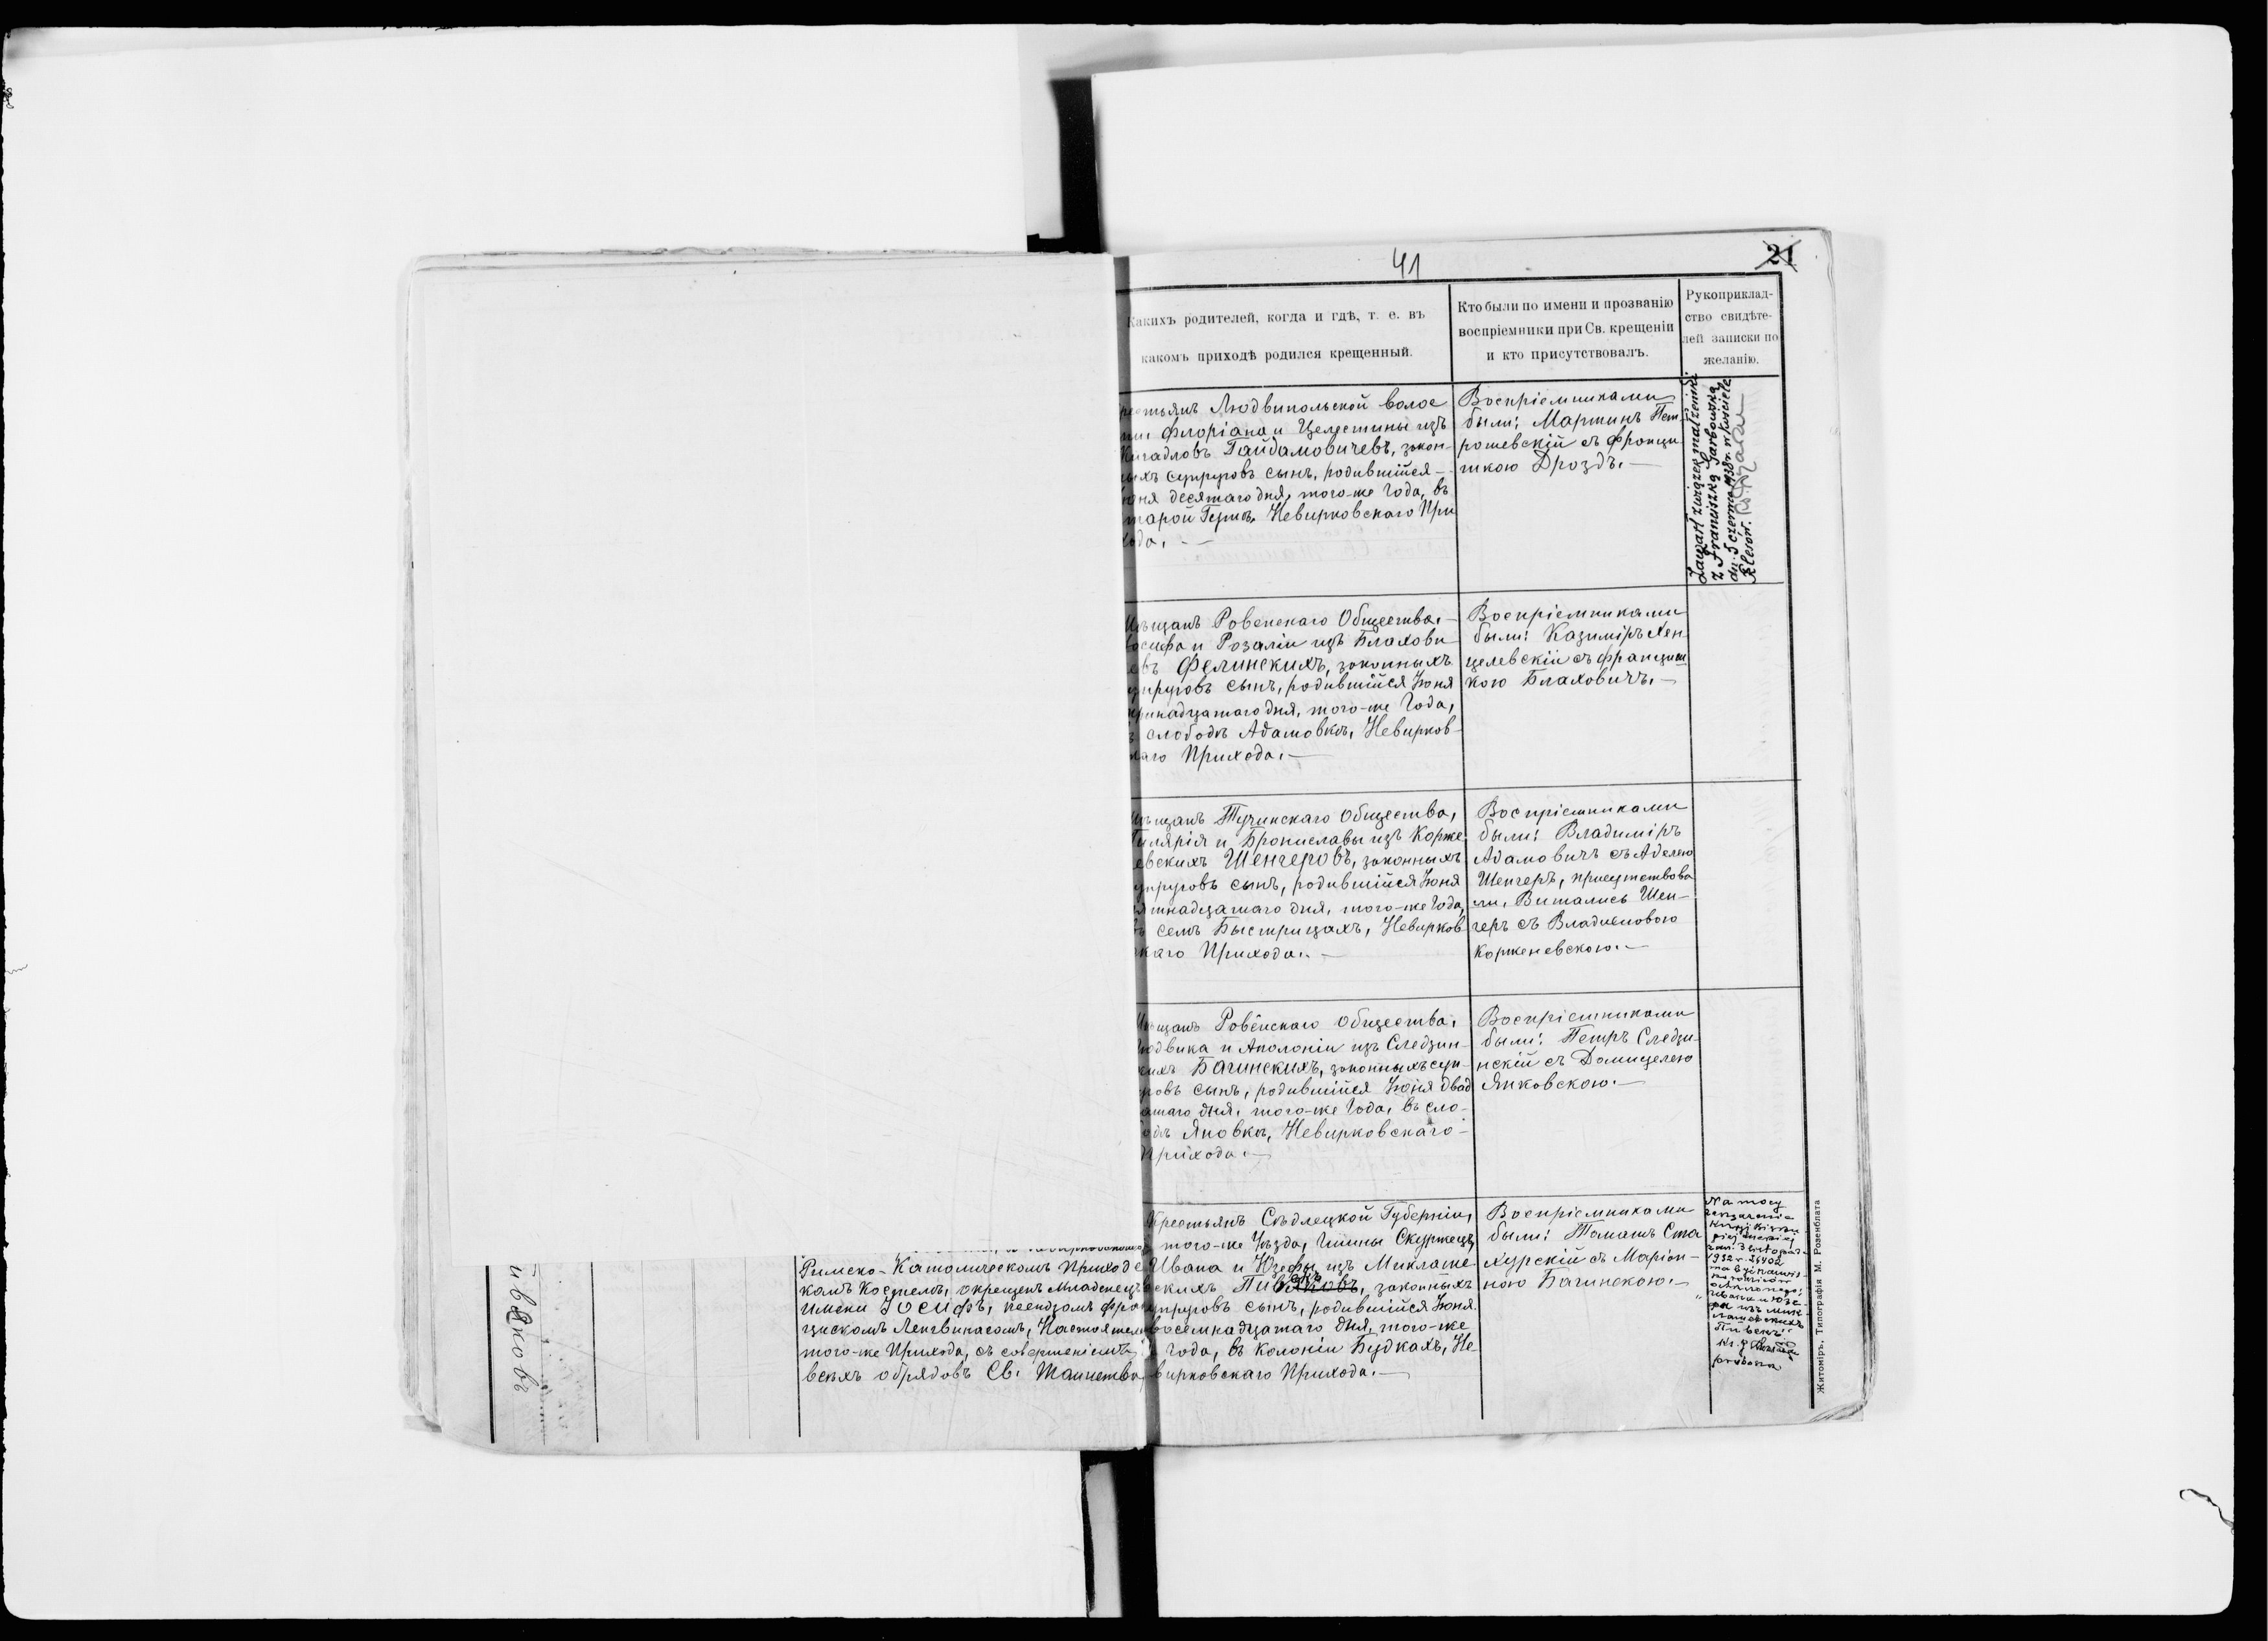 41
21
Какихъ родителей, когда и гдѣ, т. е. въ
какомъ приходѣ родился крещенный.
Кто были по имени и прозванію
воспріемники при Св. крещеніи
и кто присутствовалъ.
Рукоприклад-
ство свидѣте-
лей записки по
желанію.
рестьянъ Людвипольской волос
ти Флоріана и Целестины изъ
Гайдамовичевъ, закон-
ныхъ супруговъ сынъ, родившійся
юня десятаго дня, того-же Года, въ
тарой Гутѣ, Невирковскаго При
хода.
Воспріемниками
были: Мартинъ Пет
рошевскій съ Францы
шкою Дроздъ.
Zawarł związek małżeński
z Franciszką Garbowską
dn. 5 czerwca 1938 r. w kościele
Klesów.
ѣщанъ Ровенскаго Общества,
осифа и Розаліи изъ Блахови
евъ Фелинскихъ, законныхъ
упруговъ сынъ, родившійся Іюня
тринадцатаго дня, того-же Года,
слободѣ Адамовкѣ, Невирков
скаго Прихода.
Воспріемниками
были: Казиміръ Хен
целевскій съ Францыш
кою Блаховичъ.
ѣщанъ Тучинскаго Общества,
Гилярія и Брониславы изъ Корже
евскихъ Шенгеровъ, законныхъ
упруговъ сынъ, родившійся Іюня
ятнадцатаго дня, того-же Года,
въ селѣ Быстрицахъ, Невирков
скаго Прихода.
Воспріемниками
были: Владиміръ
Адамовичъ съ Аделею
Шенгеръ, присутствова
ли, Витались Шен-
геръ съ Владиславою
Корженевскою.
ѣщанъ Ровенскаго Общества,
юдвика и Аполоніи изъ Следзин
кихъ Багинскихъ, законныхъ суп-
ровъ сынъ, родившійся Іюня двад
атаго дня, того-же Года, въ сло-
одѣ Яновкѣ, Невирковскаго
Прихода.
Воспріемниками
были: Петръ Следзи-
нскій съ Домицелею
Янковскою.
Крестьянъ Сѣдлецкой Губерніи,
того-же Уѣзда, Гмины Скуржецъ,
Ивана и Юзефы изъ Миклаше
вскихъ Пивяковъ, законныхъ
супруговъ сынъ, родившійся Іюня
восемнадцатаго дня, того-же
Года, въ Колоніи Будкахъ, Не
вирковскаго Прихода.
Воспріемниками
были: Томашъ Ста
хурскій съ Маріон-
ною Багинскою.
Na mocy
1932 r.
Ивана и Юзе-
фы изъ Мик-
лашевскихъ
Пивекъ"
ивяковъ
Римско-Католическомъ Приходс
комъ Костелѣ, окрещенъ Младенецъ
имени Іосифъ, ксендзомъ Фран
цискомъ Ленгвинасомъ, Настоятеле
того-же Прихода, съ совершеніемъ
всѣхъ обрядовъ Св. Таинства,
Житомiръ, Типографія М. Розенблата